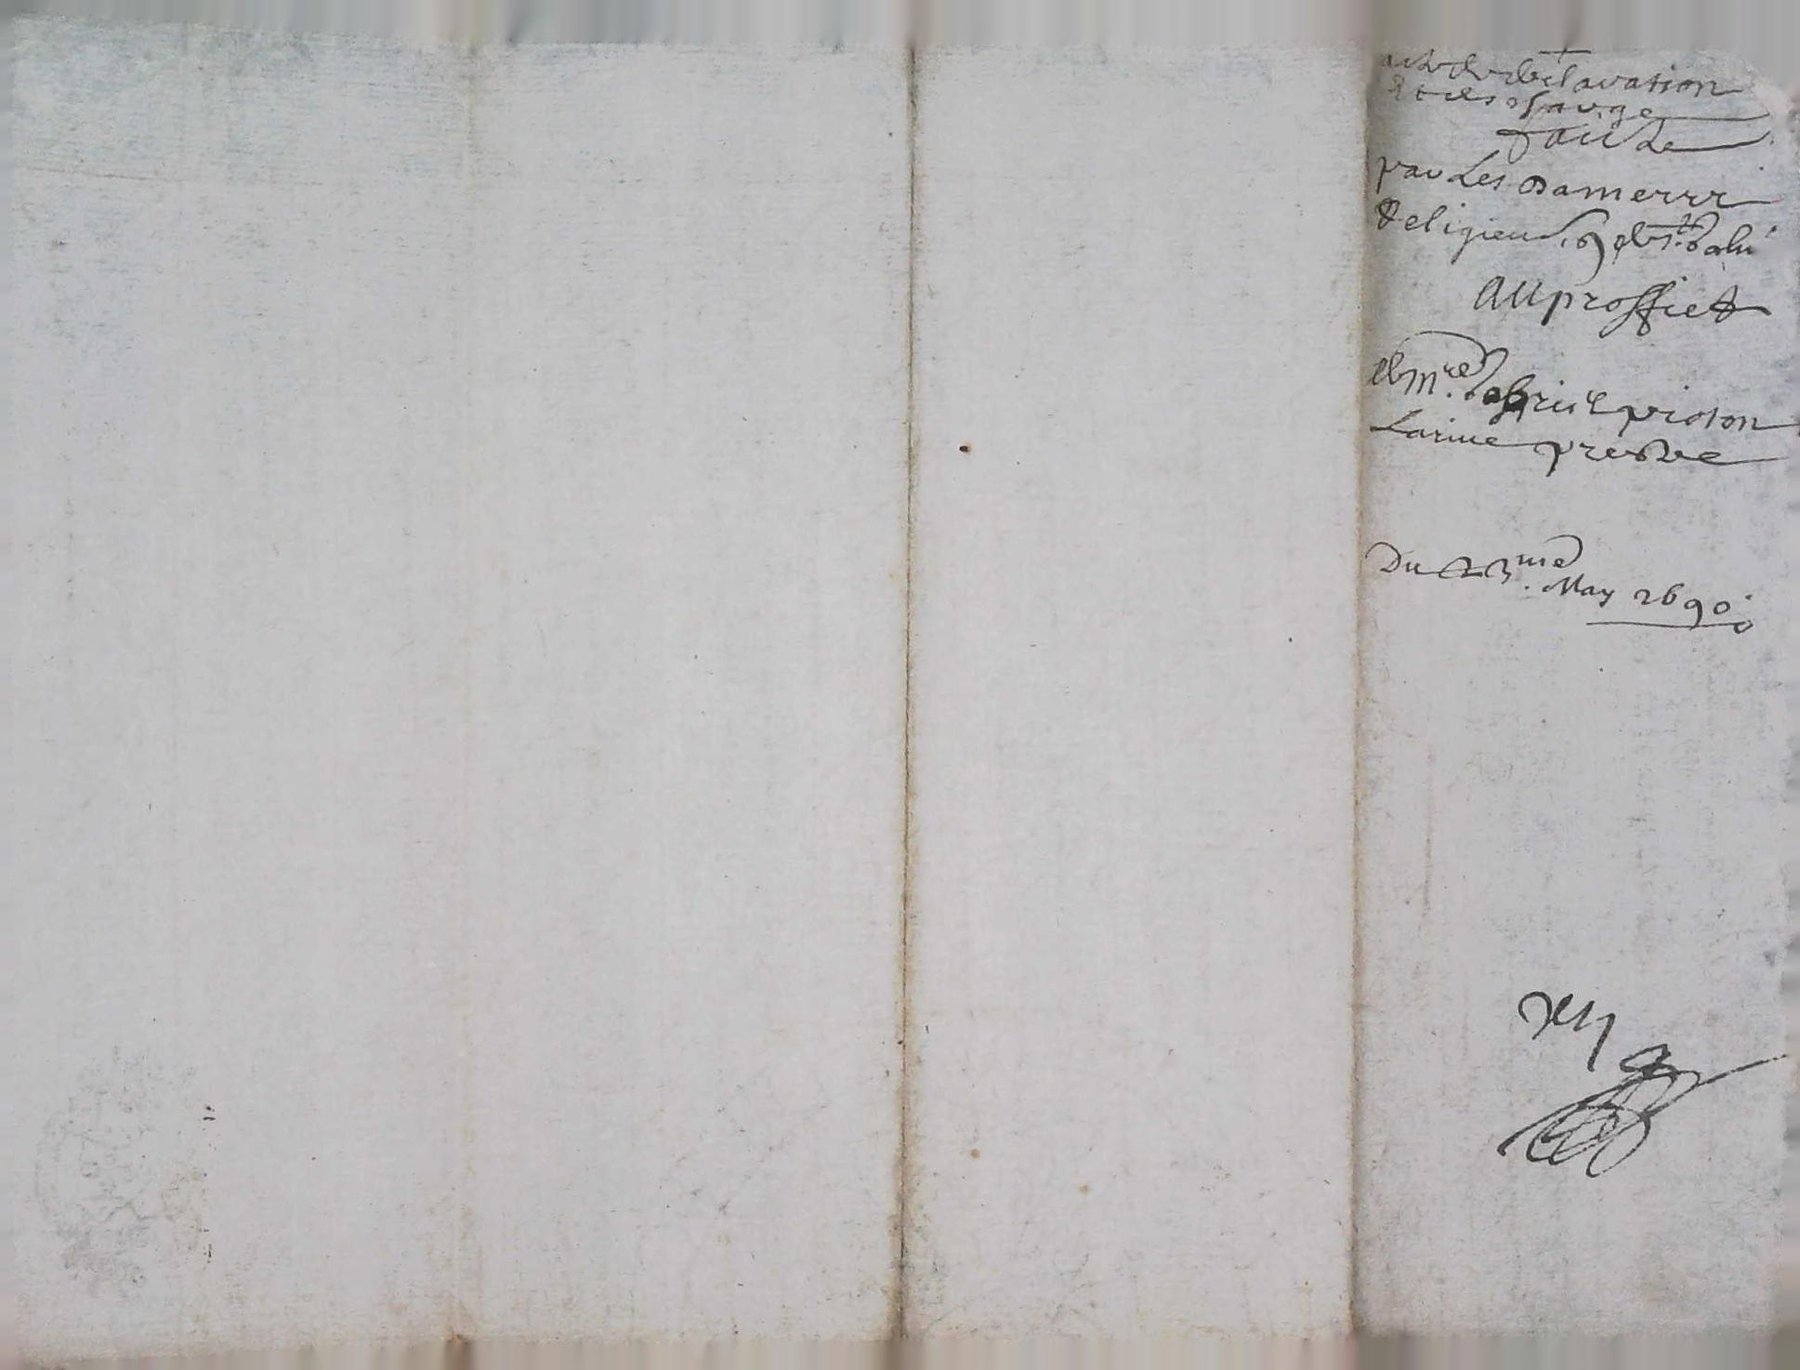 acte de declaration
et descharge
faicte
par Les Damerrr
Religieuses de
Au proffict
de Mre. gabriel prioton
Lariue prestre
Du 23me. May 1690